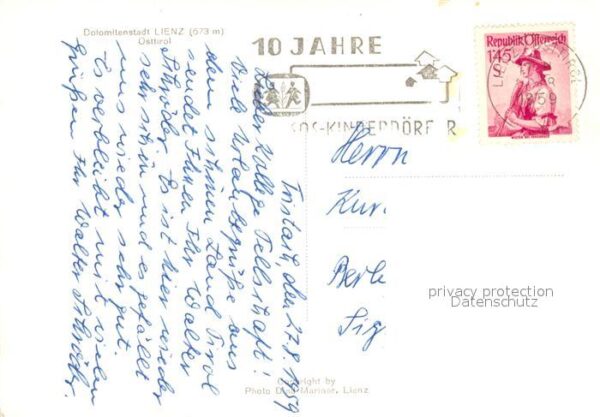 Dolomitenstadt LIENZ (673 m)
Osttirol
10 JAHRE
SOS-KINDERDÖRFER
Republik Österreich
1'45
Tristach, den 27.8.1959
Lieber Kollege Tellschaft!
Viele Urlaubsgrüße aus
dem schönen Land Tirol
sendet Ihnen Ihr Walter
Schröder. Es ist hier wieder
sehr schön und es gefällt
uns wieder sehr gut.
Es verbleibt mit vielen
Grüßen Ihr Walter Schröder.
Herrn
Kur.
Berl
Sig
privacy protection
Datenschutz
Copyright by
Photo Dina Mariner, Lienz